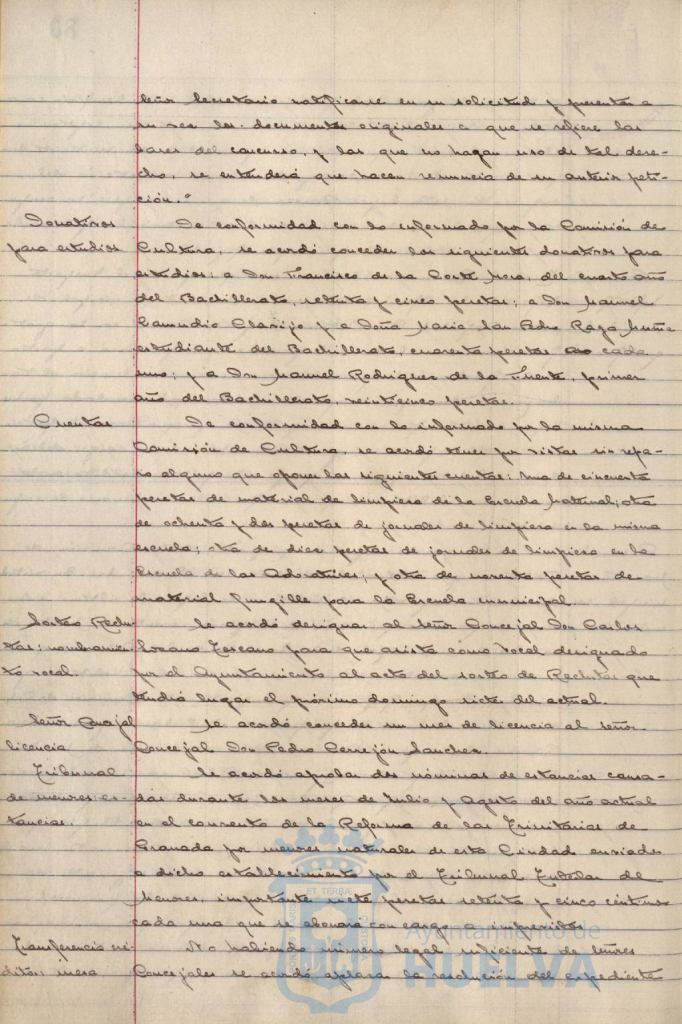 Señor Secretario ratificarse en su solicitud y presentar a
su vez los documentos originales a que se refiere las
bases del concurso, y los que no hagan uso de tal dere-
cho, se entenderá que hacen renuncia de su anterior peti-
ción."
Donativos
para estudios
De conformidad con lo informado por la Comisión de
Cultura, se acordó conceder los siguientes donativos para
estudios: a Don Francisco de la Corte Mora, del cuarto año
del Bachillerato, setenta y cinco pesetas; a Don Manuel
Zamudio Clavijo y a Doña María San Pedro Razo
estudiante del Bachillerato, cuarenta pesetas cada
uno; y a Don Manuel Rodríguez de la Fuente, primer
año del Bachillerato, veinticinco pesetas.
Cuentas
De conformidad con lo informado por la misma
Comisión de Cultura, se acordó tener por vistas sin repa-
ro alguno que oponer las siguientes cuentas: Una de cincuenta
pesetas de material de limpieza de la Escuela Maternal; otra
de ochenta y dos pesetas de jornales de limpieza en la misma
escuela; otra de diez pesetas de jornales de limpieza en la
Escuela de las Adoratrices, y otra de noventa pesetas de
material fungible para la Escuela municipal.
Sorteo Reclu-
tas: nombramien-
to vocal.
Se acordó designar al Señor Concejal Don Carlos
Lozano Toscano para que asista como Vocal designado
por el Ayuntamiento al acto del sorteo de Reclutas que
tendrá lugar el próximo domingo siete del actual.
Señor
licencia
Se acordó conceder un mes de licencia al señor
Concejal Don Pedro Cerrejón Sanchez.
Tribunal
de menores: es-
tancias.
Se acordó aprobar dos nóminas de estancias causa-
das durante los meses de Julio y Agosto del año actual
en el convento de la Reforma de las Trinitarias de
Granada por menores naturales de esta Ciudad enviados
a dicho establecimiento por el Tribunal Tutelar de
Menores, importante siete pesetas setenta y cinco céntimos
cada una que se abonará con cargo a imprevistos.
Transferencia cré-
ditos: mesa
No habiendo número legal suficiente de Señores
Concejales se acordó aplazar la resolución del expediente
Ayuntamiento de
HUELVA